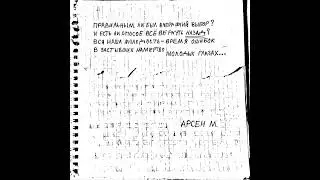 ПРАВИЛЬНЫМ ЛИ БЫЛ ВЧЕРАШНИЙ ВЫБОР?
И ЕСТЬ ЛИ СПОСОБ ВСЁ ВЕРНУТЬ НАЗАД?
ВСЯ НАША МОЛОДОСТЬ - ВРЕМЯ ОШИБОК
В ЗАСТЫВШИХ НАМЕРТВО
МОЛОДЫХ ГЛАЗАХ...
АРСЕН М.